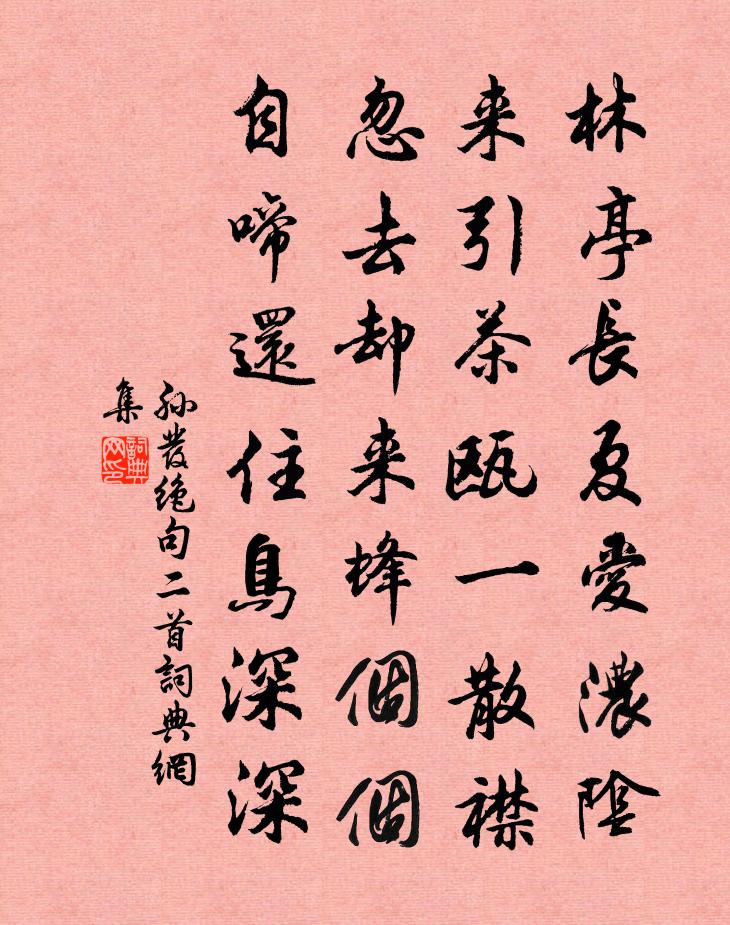 林亭長夏愛濃陰
来引茶甌一散襟
忽去却来蜂個個
自啼還住鳥深深
孙發絶句二首詞典網
集
詞典
网印